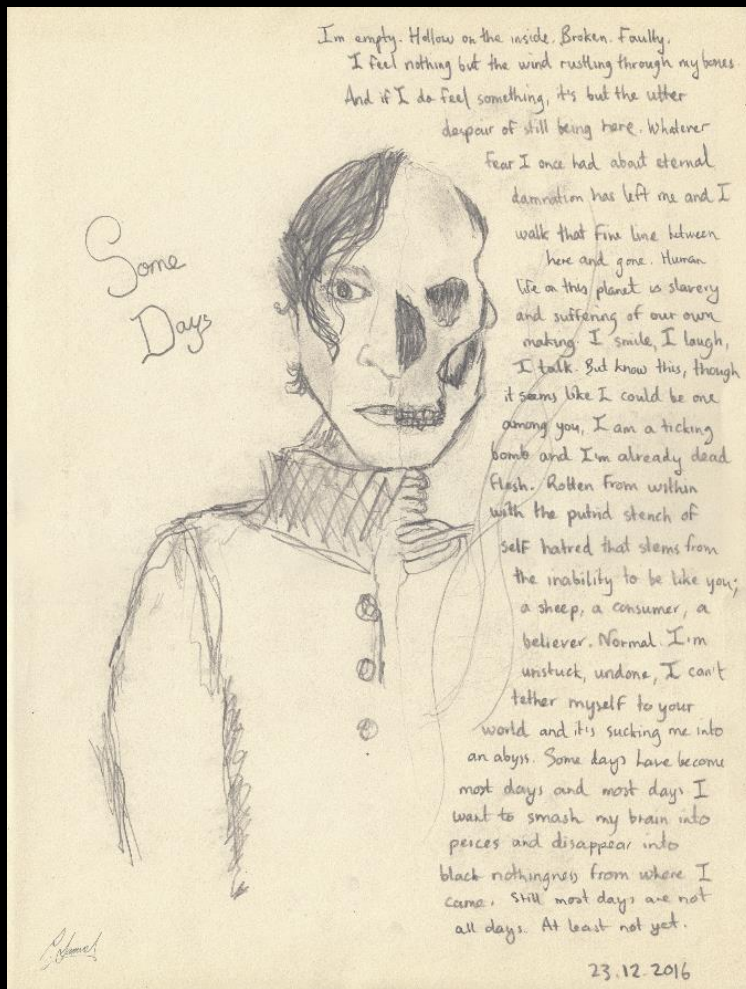 Im empty. Hollow on the inside. Broken. Faulty.
I feel nothing but the wind rustling through my bones.
And if I do feel something, it's but the utter
despair of still being here. Whatever
fear I once had about eternal
damnation has left me and I
walk that fine line between
here and gone. Human
life on this planet is slavery
and suffering of our own
making. I smile, I laugh,
I talk. But know this, though
it seems like I could be one
among you, I am a ticking
bomb and I'm already dead
flesh. Rotten from within
with the putrid stench of
self hatred that stems from
the inability to be like you;
a sheep, a consumer, a
believer. Normal. I'm
unstuck, undone, I can't
tether myself to your
world and it's sucking me into
an abyss. Some days have become
most days and most days I
want to smash my brain into
peices and disappear into
black nothingness from where I
came. Still most days are not
all days. At least not yet.
23.12.2016
Some
Days